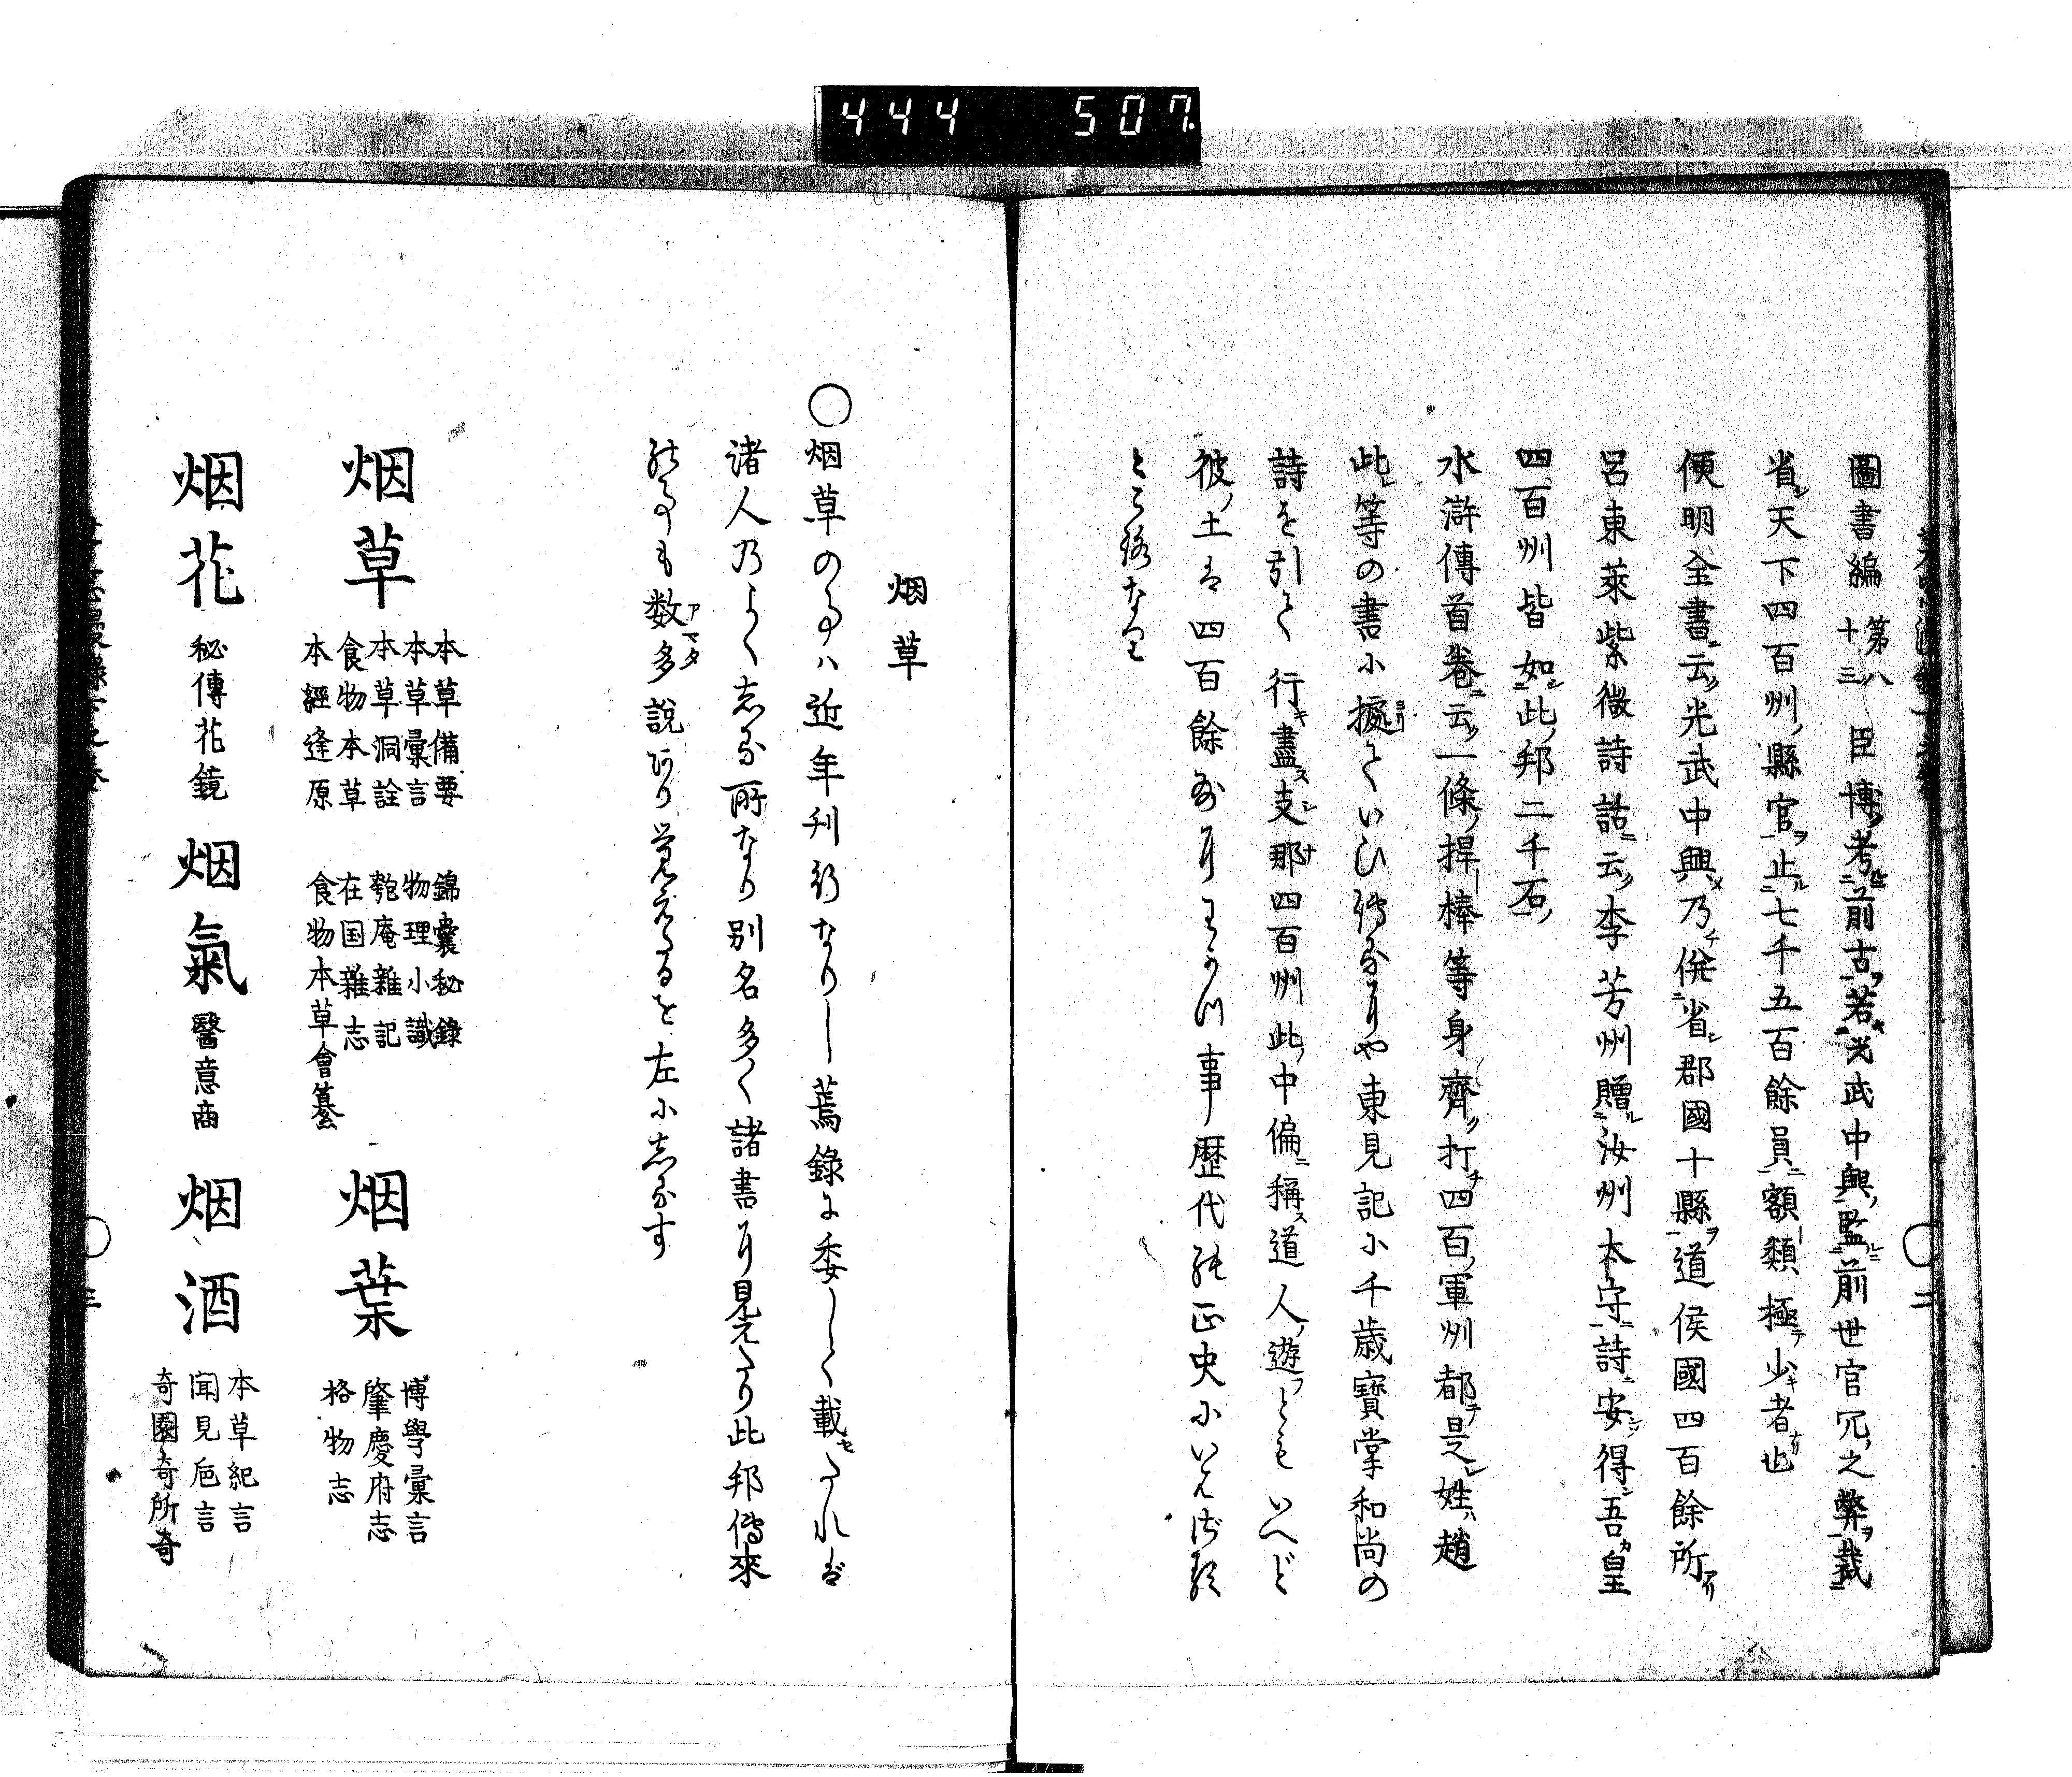 444 507
圖書編 第八十三 臣博考前古若光武中興監前世官冗之弊裁
省天下四百州縣官止七千五百餘員額類極少者也
便明全書云光武中興乃併省郡國十縣道侯國四百餘所
呂東萊紫微詩話云李芳州贈汝州太守詩安得吾皇
四百州皆如此邦二千石
水滸傳首卷云一條捍棒等身齊打四百軍州都是姓趙
此等の書に據ていひ傳ふるにや東見記に千歳寶掌和尚の
詩を引て行盡支那四百州此中偏稱道人遊ともいへど
彼土は四百餘州にわかつ事歴代の正史にいはざる
ところなり
烟草
○烟草の事ハ近年刊行なりし蔫錄に委しく載たれば
諸人乃よく志る所なり別名多く諸書に見えたり此邦傳來
の事も数多説あり覚えたるを左に志るす
烟草
本草備要
本草彙言
本草洞詮
食物本草
本經逢原
錦囊秘錄
物理小識
匏庵雜記
在国雜志
食物本草會纂
烟葉
博學彙言
肇慶府志
格物志
烟花 秘傳花鏡
烟氣 醫意商
烟酒
本草紀言
聞見巵言
奇園寄所寄
二
三